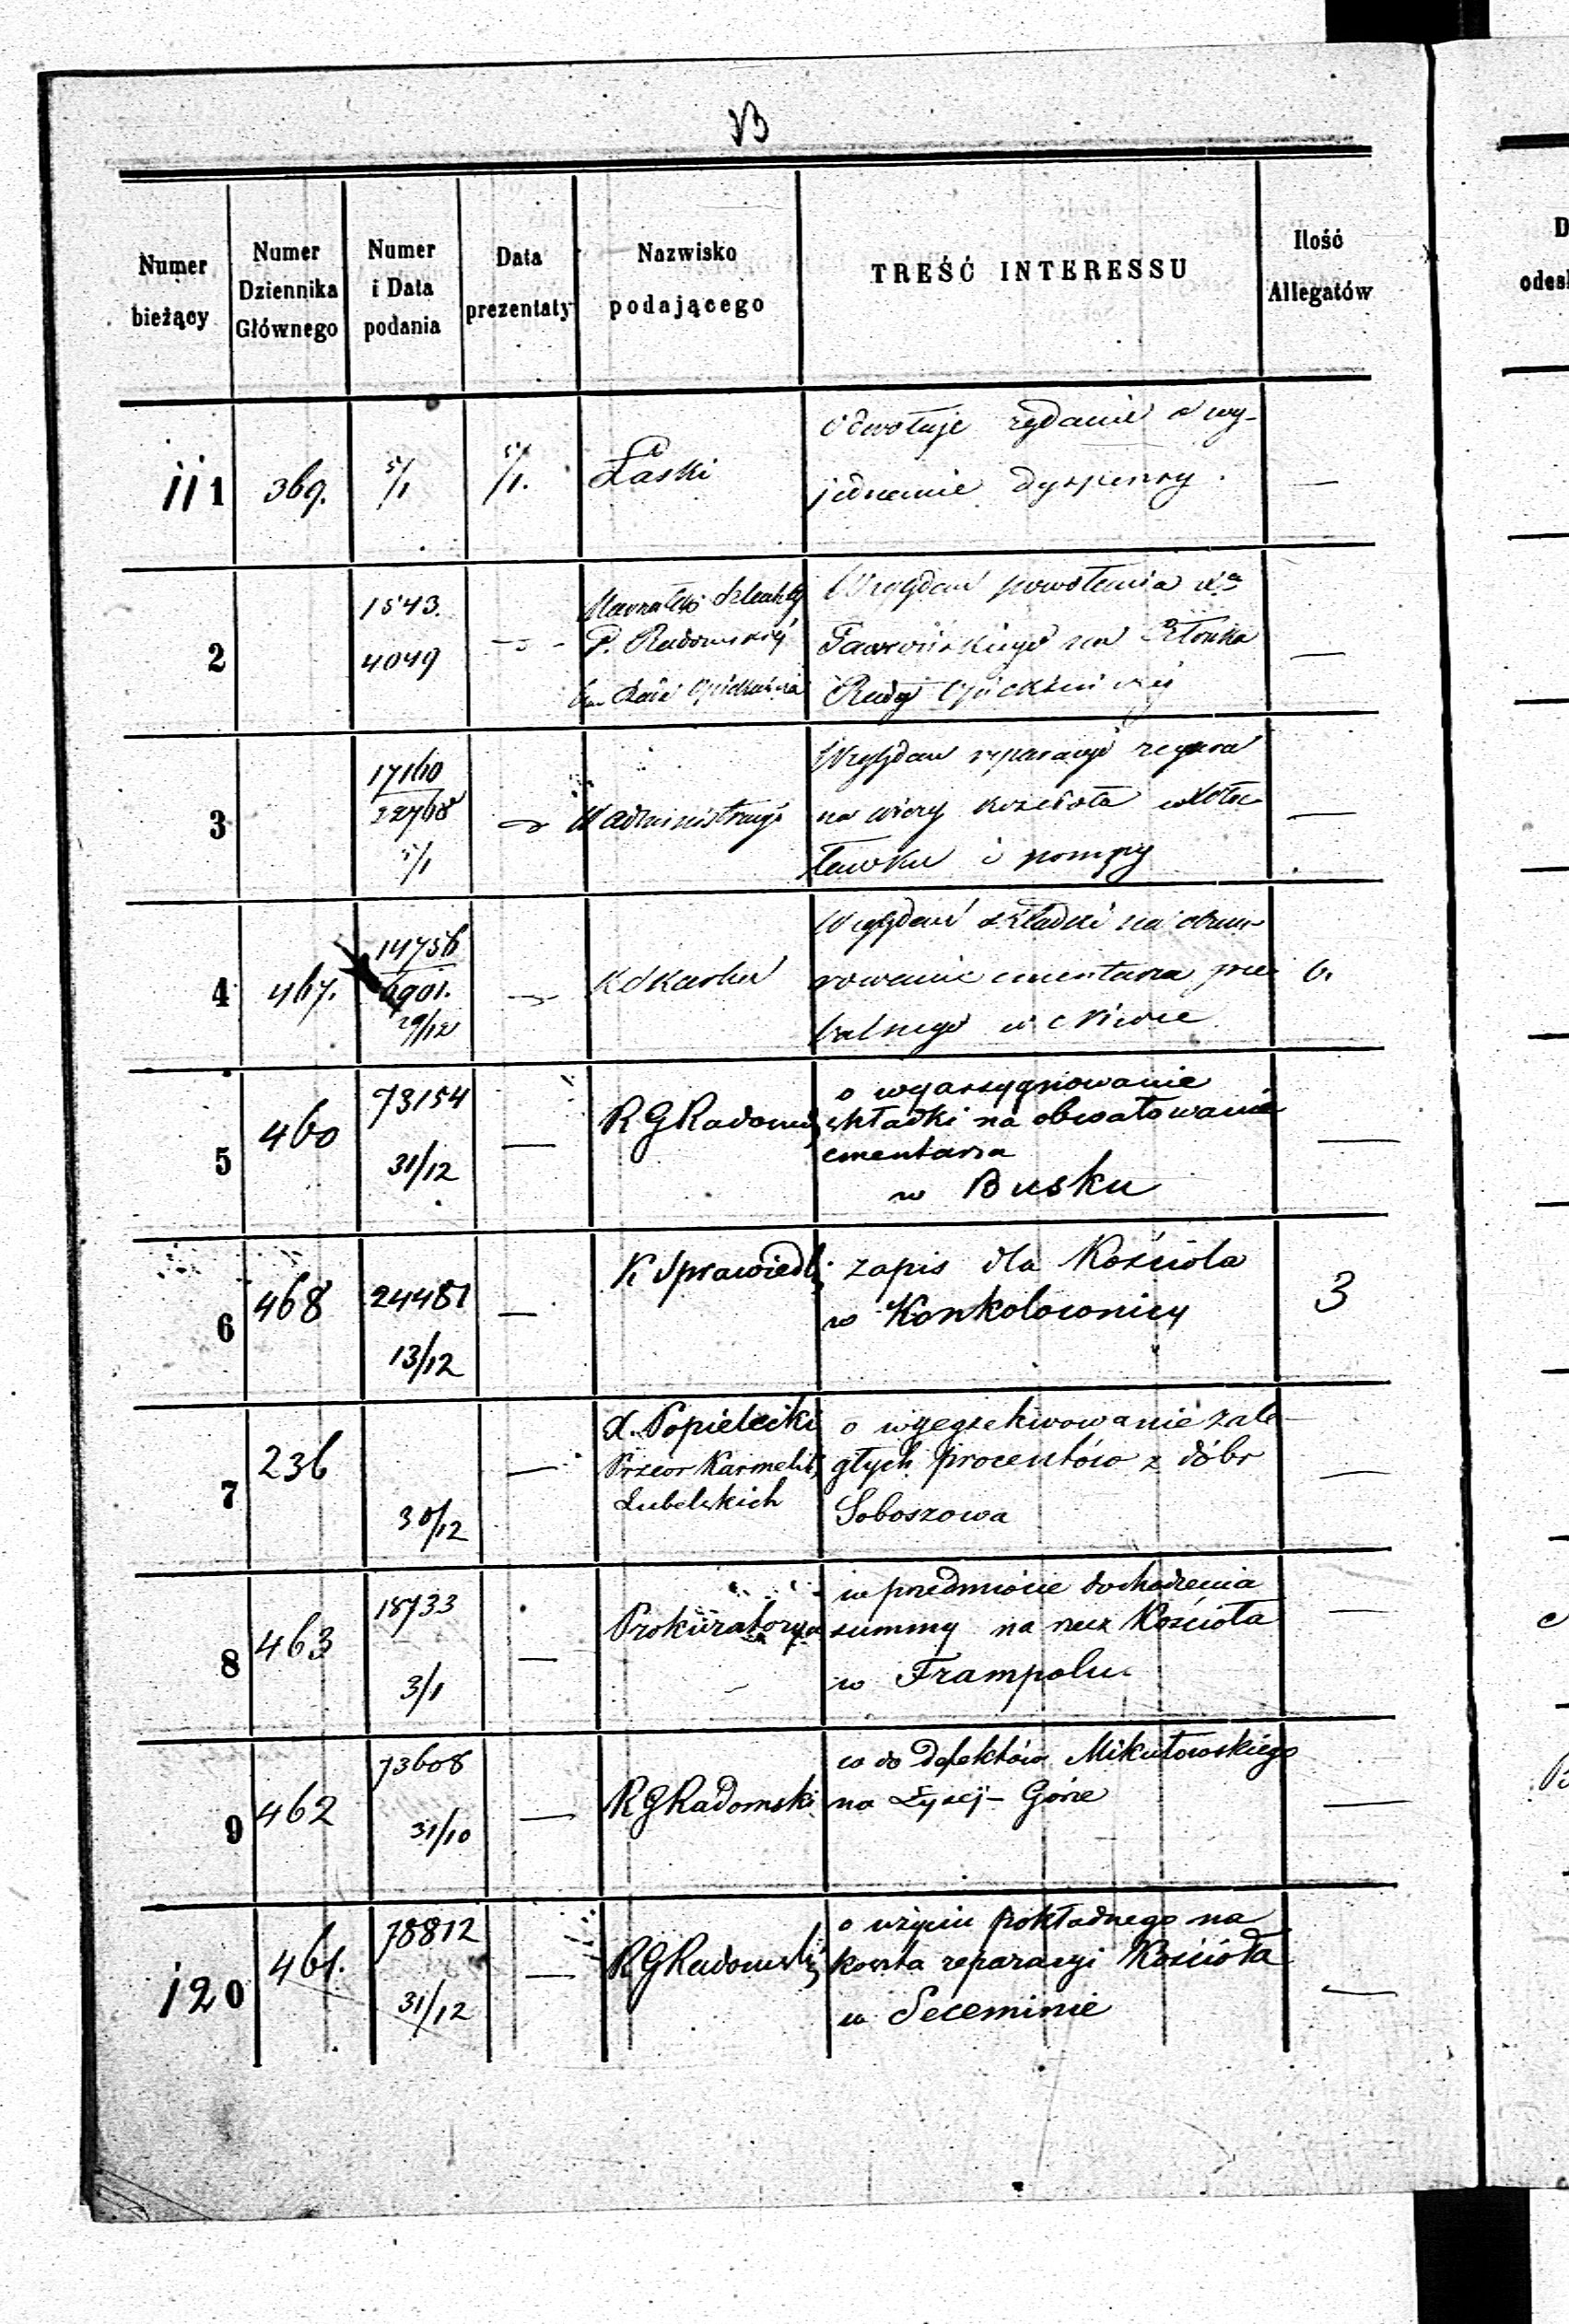 Numer bieżący
Numer Dziennika Głównego
Numer i Data podania
Data prezentaty
Nazwisko podającego
TREŚĆ INTERESSU
Ilość Allegatów
111 369. 5/1 5/1. Łaski odwołuje żądanie o wy-
jednanie dyspensy. —
2 1543.
4049
P. Radomskiej
powołania
na Członka
Rady Opiekuńczej —
3 17160
22768
5/1
W administracyi
Względem reparacyi zegara
na wieży kościoła w Włoc
ławku i pompy —
4 467. 14756
6901.
29/12
Względem składki na obmu-
rowanie cmentarza grze
balnego w 6.
5 460 73154
31/12
— R G Radoms
o wyassygnowanie
składki na obwałowanie
cmentarza
w Busku —
6 468 24481
13/12
— K Sprawiedl:
zapis dla Kościoła
w Konkolownicy 3
7 236
30/12
— X. Popielecki
Przeor Karmelit
Lubelskich
o wyegzekwowanie zale-
głych procentów z dóbr
Soboszowa —
8 463 18733
3/1
— Prokuratorya
w przedmiocie dochodzenia
summy na rzecz Kościoła
w Frampolu —
9 462 73608
31/10
— R G Radomski
co do defektów Mikułowskiego
na Łysej-Górze —
120 461. 78812
31/12
— R G Radomski
o użyciu pokładnego na
koszta reparacyi Kościoła
w Seceminie —
D
odes